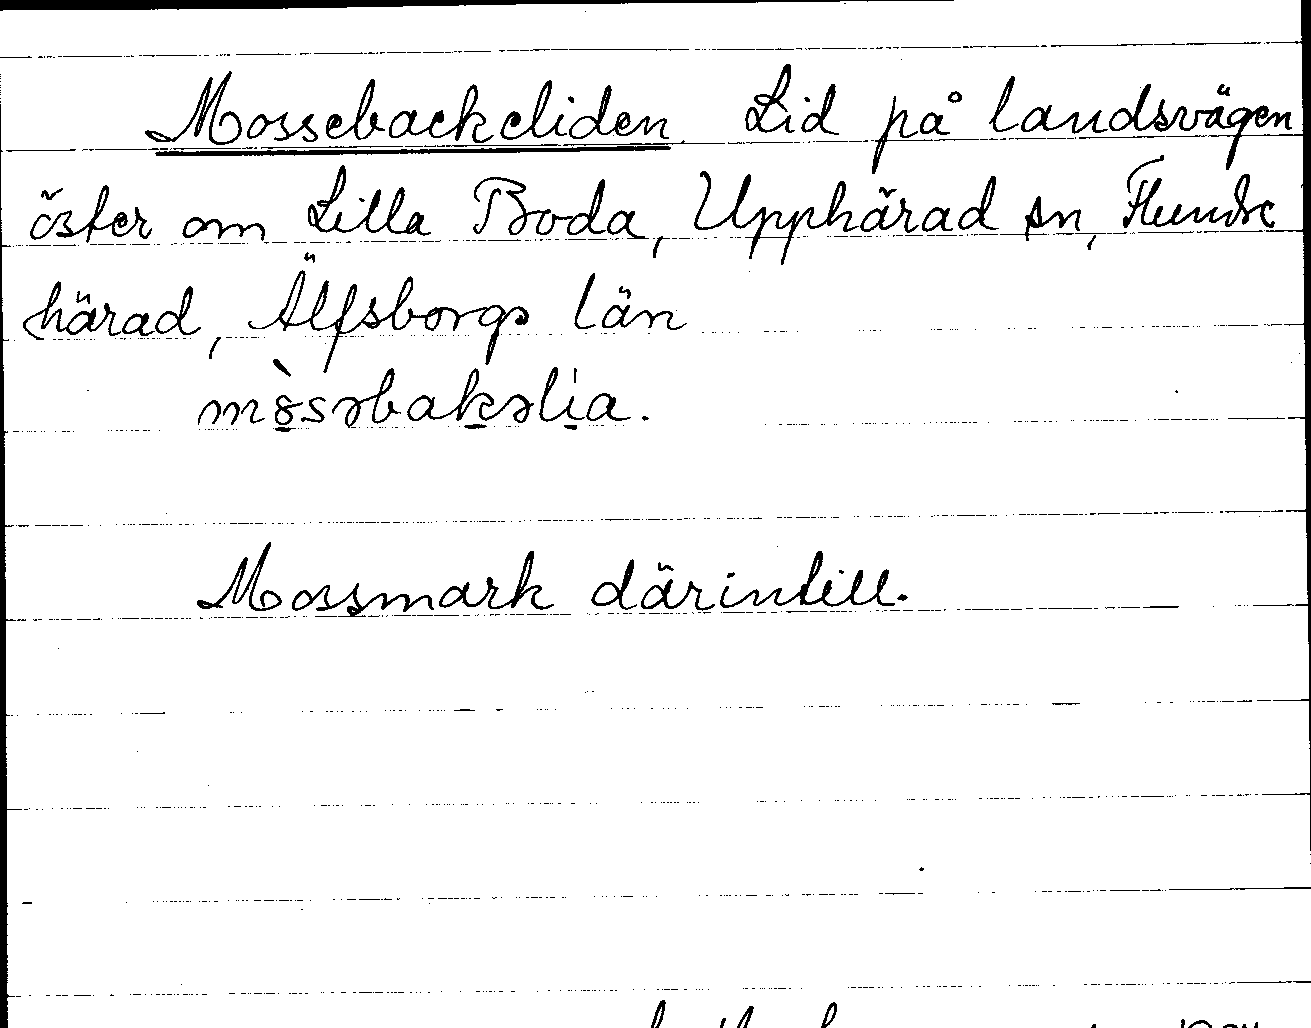 Mossebackeliden. Lid på landsvägen
öster om Lilla Boda, Upphärad sn, Flundre
härad, Älfsborgs län
Mossmark därintill.